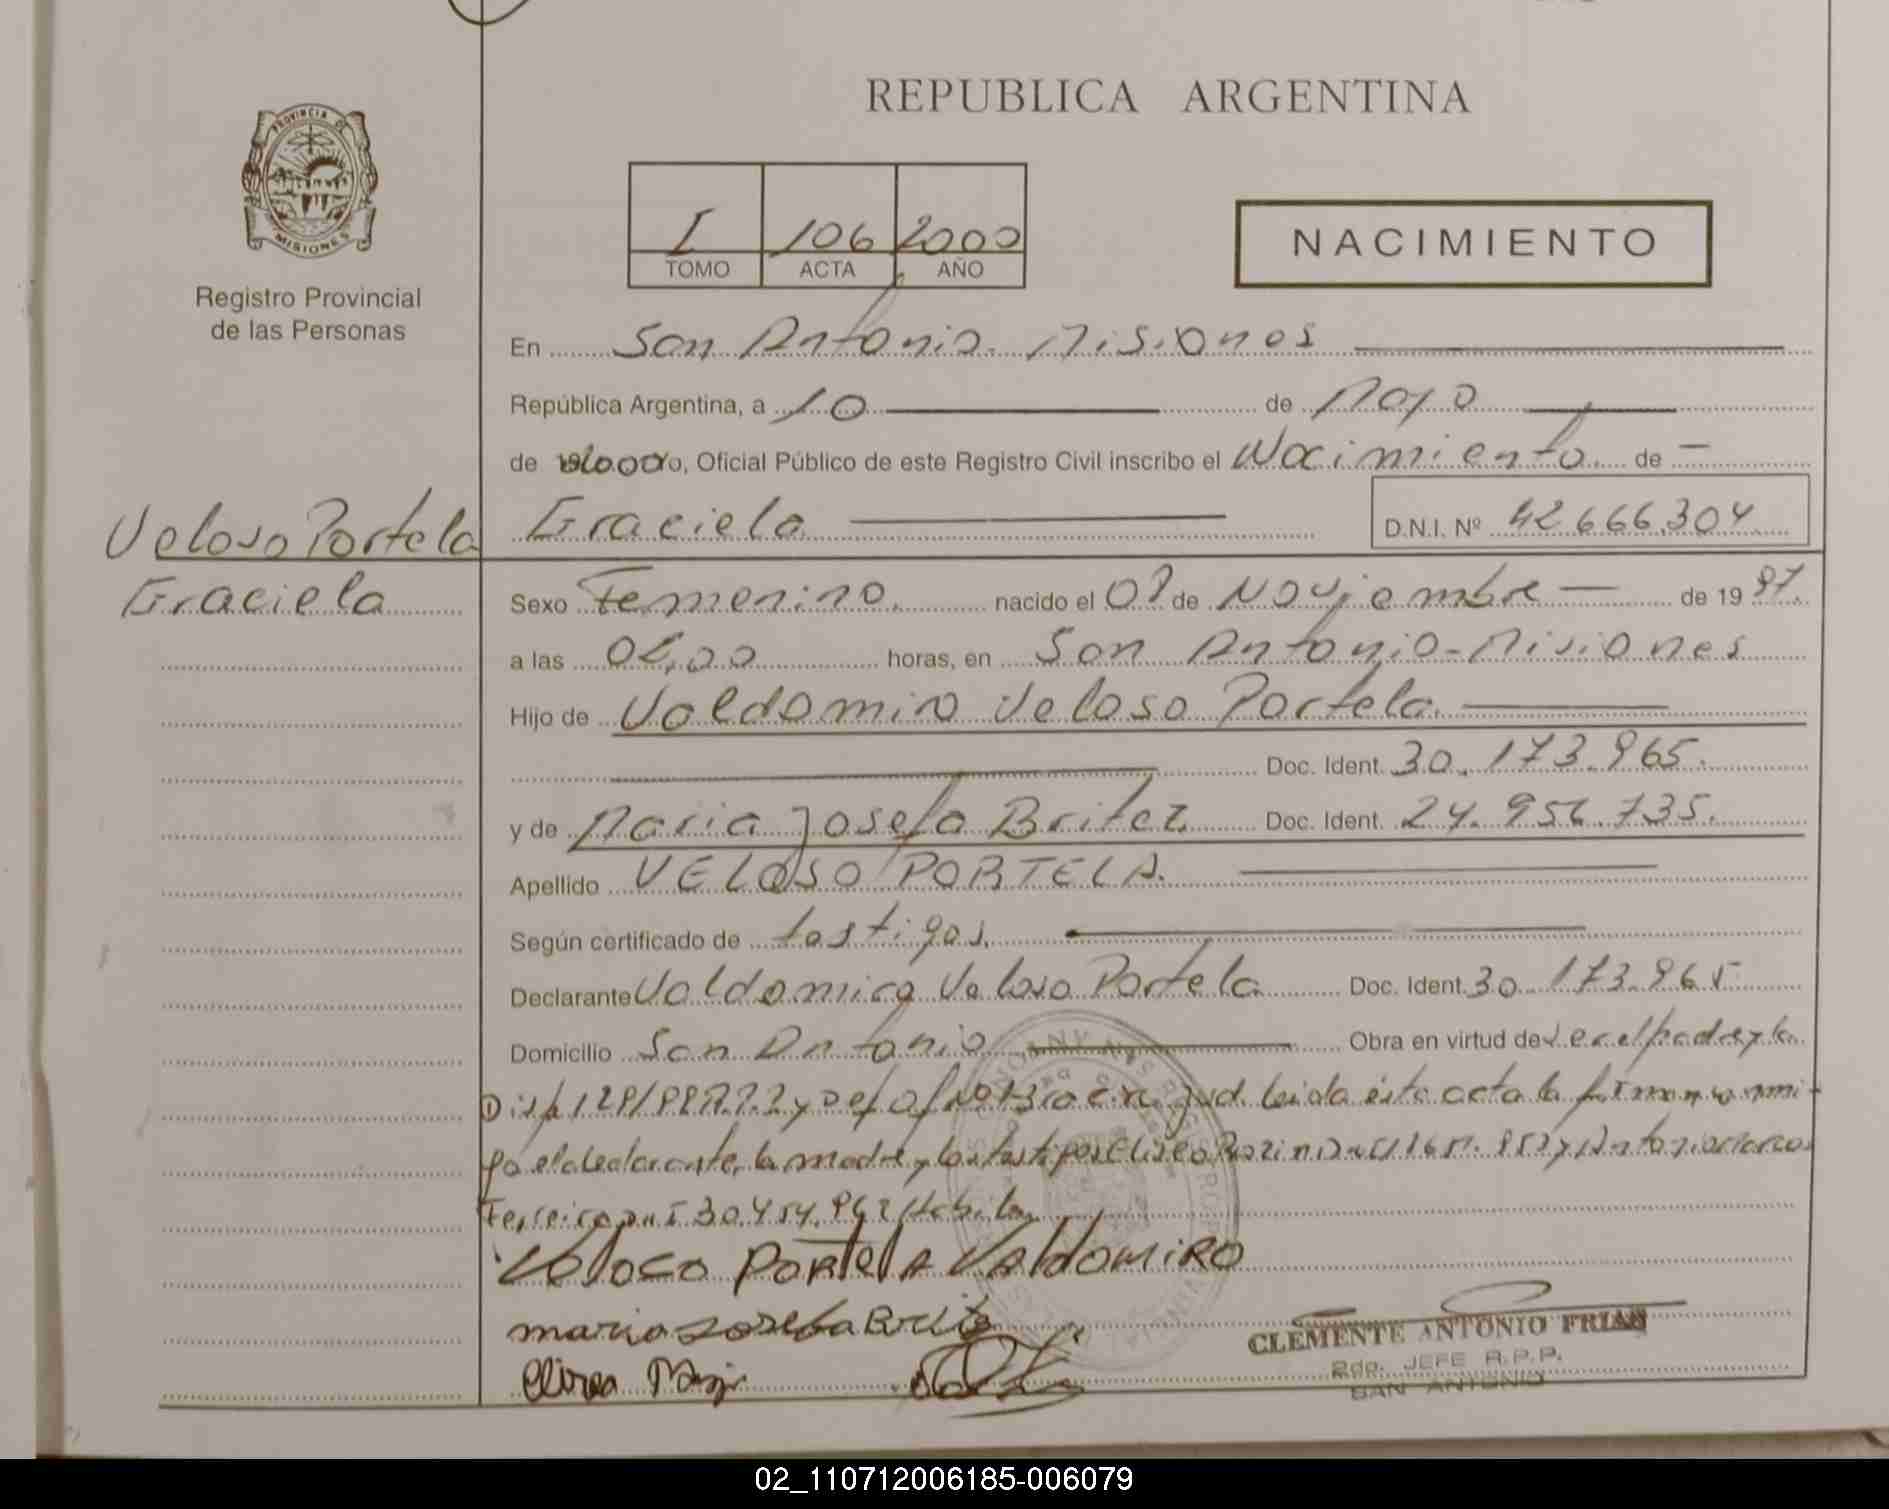 PROVINCIA DE
MISIONES
Registro Provincial
de las Personas
REPUBLICA ARGENTINA
I 106 2000
TOMO ACTA AÑO
NACIMIENTO
En San Antonio Misiones
República Argentina, a 10 de Mayo
de 2000 yo, Oficial Público de este Registro Civil inscribo el Nacimiento de
Veloso Portela Graciela D.N.I. Nº 42.666.304
Graciela
Sexo Femenino. nacido el de Noviembre de 19 97.
a las horas, en San Antonio-Misiones
Hijo de Valdomiro Veloso Portela.
Doc. Ident. 30.173.965.
y de Maria Josefa Britez Doc. Ident. 24.956.735.
Apellido VELOSO PORTELA.
Según certificado de testigos.
Declarante Valdomiro Veloso Portela Doc. Ident. 30.173.965
Domicilio San Antonio Obra en virtud de ser el padre y la
leida ésta acta la firman conmi-
go el declarante, la madre y los testigos Eliseo y Antonio Marcos
Ferreira
Veloso PORTELA VALDOMIRO
maria Josefa Britez
CLEMENTE ANTONIO FRIAS
2do. JEFE R.P.P.
SAN ANTONIO
02_110712006185-006079